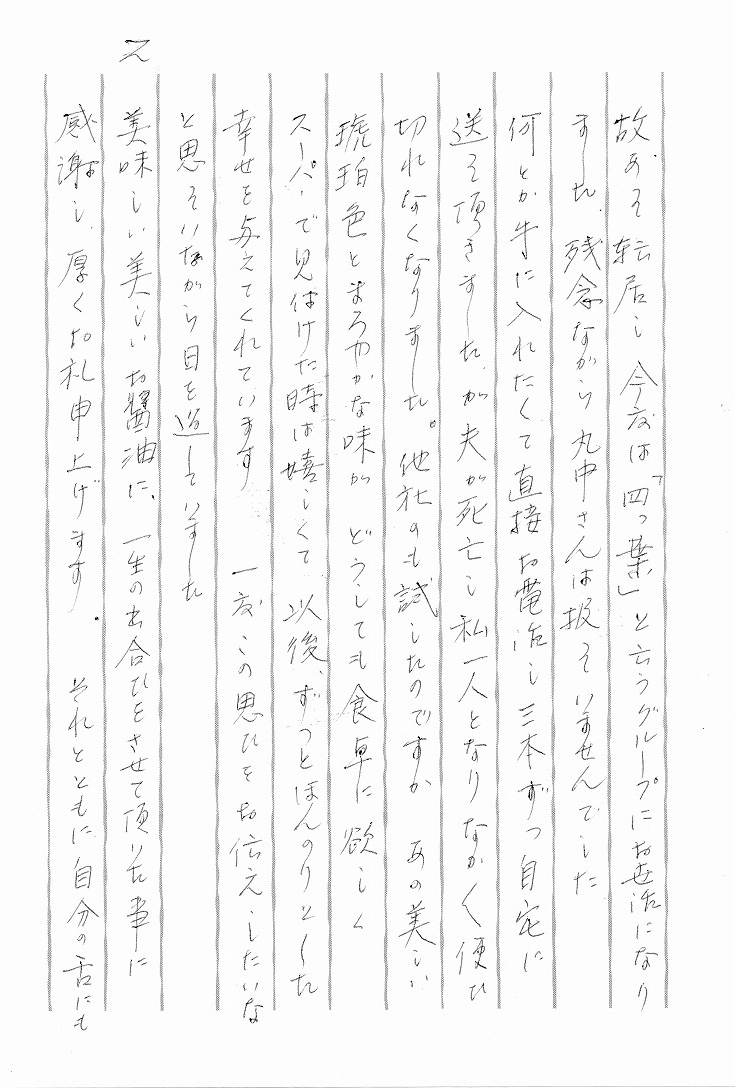 故あって転居し 今度は「四つ葉」と言うグループにお世話になり
ました、残念ながら丸中さんは扱っていませんでした
何とか手に入れたくて直接お電話し三本ずつ自宅に
送って頂きました、が夫が死亡し私一人となりなかなか使ひ
切れなくなりました。他社のも試したのですが あの美しい
琥珀色とまろやかな味が どうしても食卓に欲しく
スーパーで見付けた時は嬉しくて、以後、ずっとほんのりとした
幸せを与えてくれています 一度この思ひをお伝えしたいな
と思っていながら日を過していました
美味しい美しいお醤油に、一生の出合ひをさせて頂いた事に
感謝し、厚くお礼申上げます。 それとともに自分の舌にも